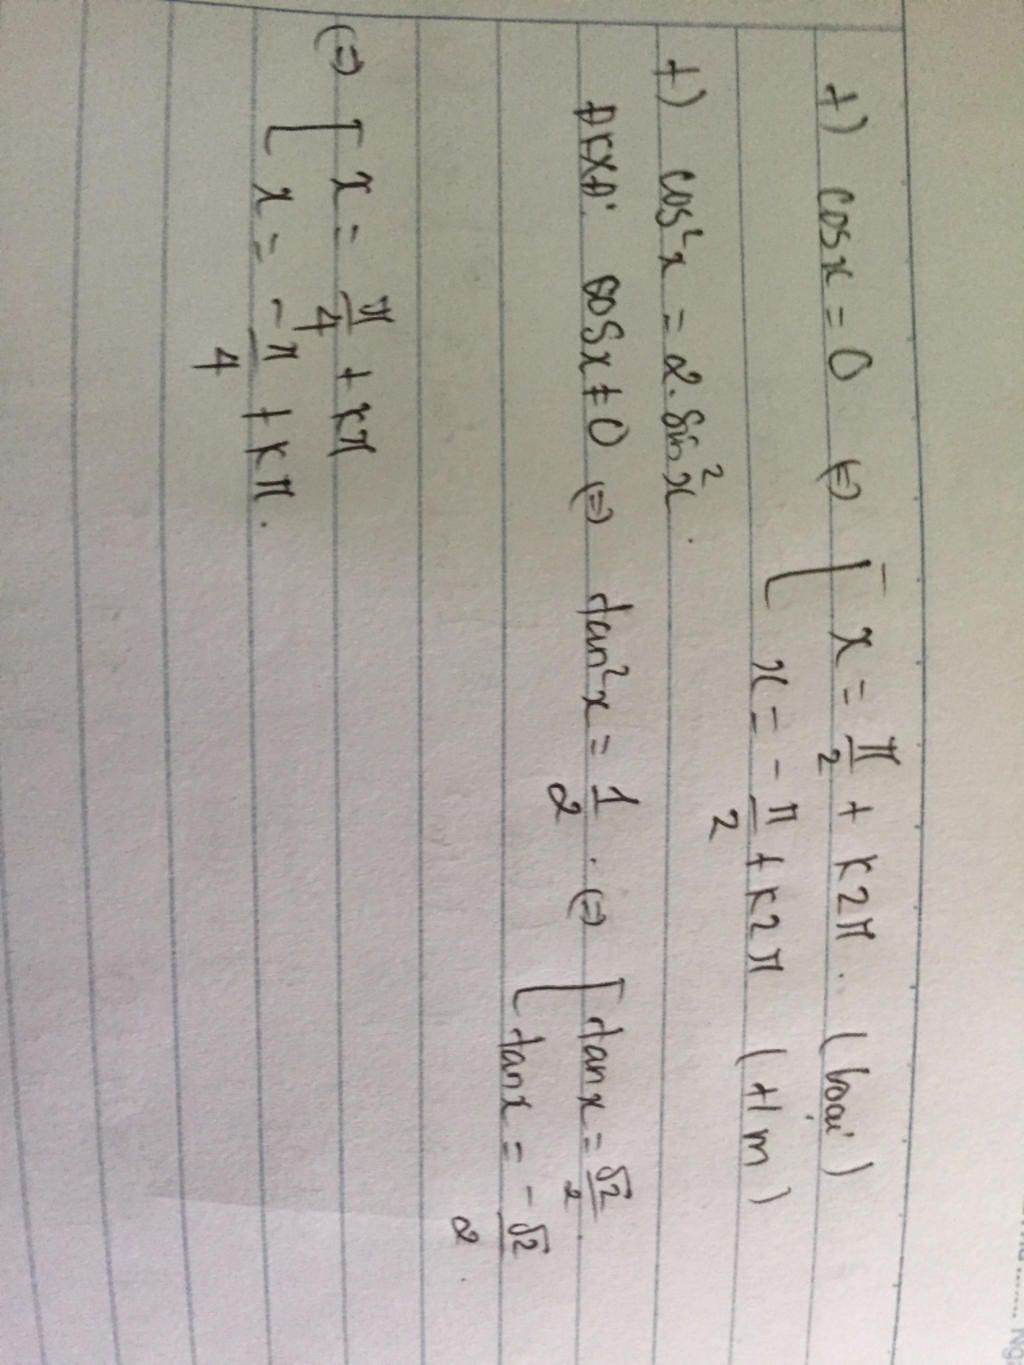 +) cosx = 0 (=) [ x = π/2 + k2π. (loại)
x = -π/2 + k2π (t/m)
+) cos²x = 2.sin²x.
ĐKXĐ: cosx ≠ 0 (=) tan²x = 1/2 . (=) [ tanx = √2/2
tanx = -√2/2.
(=) [ x = π/4 + kπ
x = -π/4 + kπ.